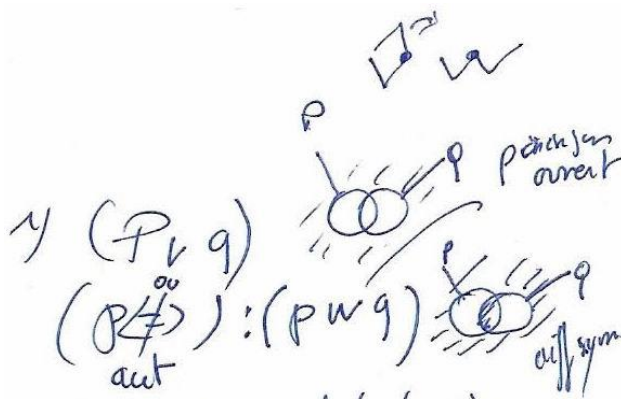 P
q
ouvert
(P v q)
P
q
ou
(p <≠>) : (p w q)
aut
diff sym